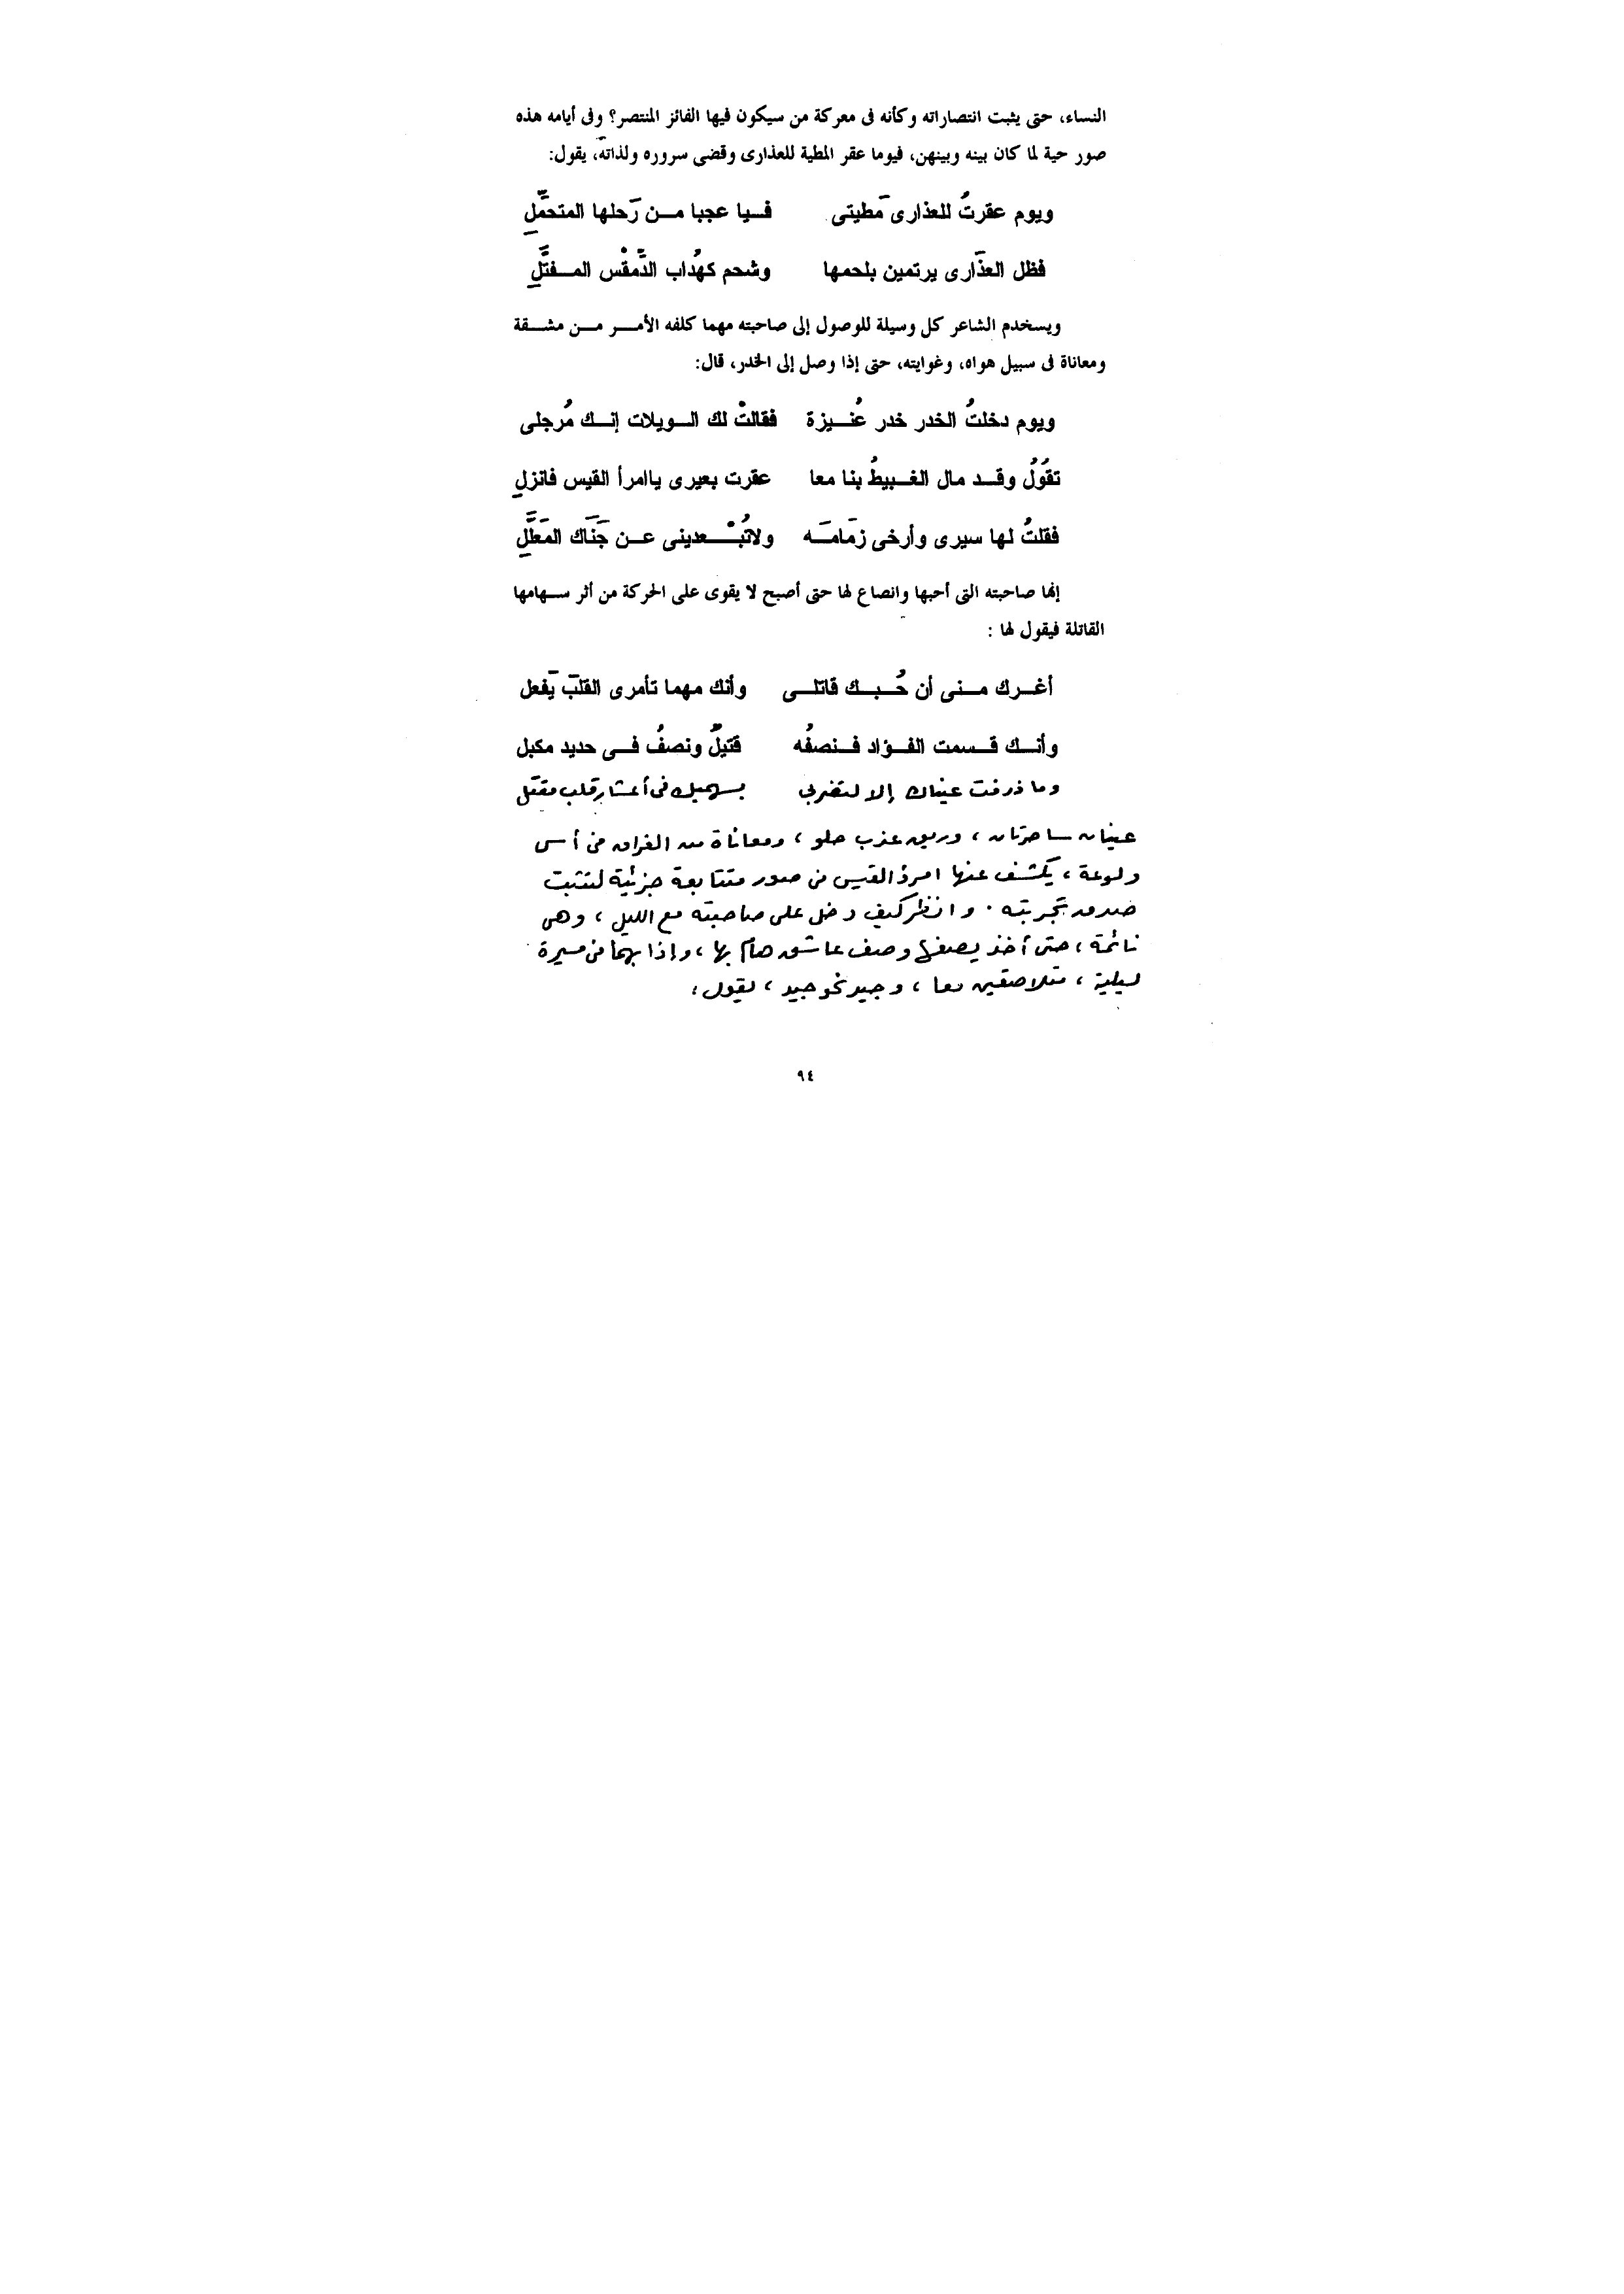 النساء، حتى يثبت انتصاراته وكأنه فى معركة من سيكون فيها الفائز المنتصر؟ وفى أيامه هذه
صور حية لما كان بينه وبينهن، فيوما عقر المطية للعذارى وقضى سروره ولذاته، يقول:
ويوم عقرتُ للعذارى مَطيتى فيا عجبا من رَحلها المتحمَّلِ
فظل العذَارى يرتمين بلحمها وشحم كهُداب الدَّمقْس المفتَّلِ
ويسخدم الشاعر كل وسيلة للوصول إلى صاحبته مهما كلفه الأمر من مشقة
ومعاناة فى سبيل هواه، وغوايته، حتى إذا وصل إلى الخدر، قال:
ويوم دخلتُ الخدر خدر عُنيزة فقالتْ لك الويلات إنك مُرجلى
تقُولُ وقد مال الغبيطُ بنا معا عقرت بعيرى ياامرأ القيس فانزلِ
فقلتُ لها سيرى وأرخى زمَامَه ولاتُبْعدينى عن جَنَاك المَعَلَّلِ
إنها صاحبته التى أحبها وانصاع لها حتى أصبح لا يقوى على الحركة من أثر سهامها
القاتلة فيقول لها :
أغرك منى أن حُبك قاتلى وأنك مهما تأمرى القلبَ يَفعل
وأنك قسمت الفؤاد فنصفُه قتيلٌ ونصفُ فى حديد مكبل
وما ذرفت عيناك إلا لتضربى بسهميك فى أعشار قلب مقتل
عينان ساحرتان ، وريق عذب حلو ، ومعاناة من الفراق فى أسى
ولوعة ، يكشف عنها امرؤ القيس فى صور متتابعة جزئية لتثبت
صدق تجربته . وانظر كيف دخل على صاحبته مع الليل ، وهى
نائمة ، حتى أخذ يصفها وصف عاشق هام بها ، وإذا بهما فى مسيرة
ليلية ، متلاصقين معا ، وجيد نحو جيد ، يقول :
٩٤